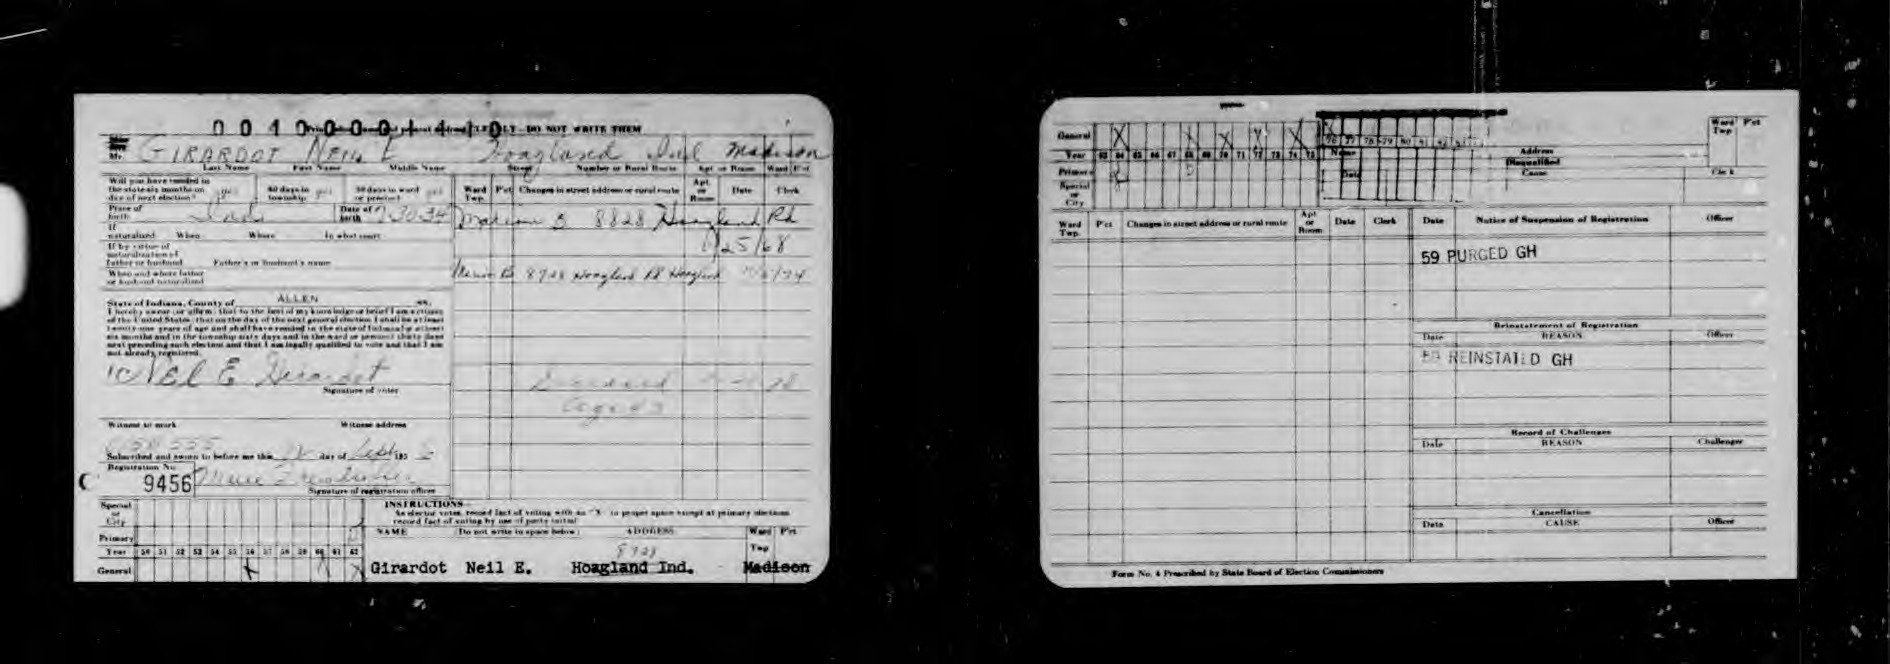 0040000140
DO NOT WRITE THEM
Mr. GIRARDOT NEIL E Hoagland Ind Madison
Last Name First Name Middle Name Street Number or Rural Route Apt or Room Ward Pct
Will you have resided in the state six months on day of next election? yes 60 days in township yes 30 days in ward or precinct yes
Ward Twp. Pct Changes in street address or rural route Apt or Room Date Clerk
Place of birth Ind Date of birth 7-30-34
Marion B 8828 Hoagland Rd
If naturalized When Where In what court
1/25/68
If by virtue of naturalization of father or husband Father's or husband's name
When and where father or husband naturalized
Marion B 8728 Hoagland Rd Hoagland /74
State of Indiana, County of ALLEN ss.
I hereby swear (or affirm) that to the best of my knowledge or belief I am a citizen
of the United States; that on the day of the next general election I shall be at least
twenty-one years of age and shall have resided in the state of Indiana at least
six months and in the township sixty days and in the ward or precinct thirty days
next preceding such election and that I am legally qualified to vote and that I am
not already registered.
NEL E Girardot
Signature of voter
Deceased 78
Witness to mark Witness address
Subscribed and sworn to before me this day of Sept 195
Registration No.
C 9456 Marie
Signature of registration officer
Special or City
Primary
Year 50 51 52 53 54 55 56 57 58 59 60 61 62
General X X X
INSTRUCTIONS
As elector votes, record fact of voting with an "X" in proper space except at primary elections
record fact of voting by use of party initial
NAME (Do not write in space below) ADDRESS Ward Twp Pct
8728
Girardot Neil E. Hoagland Ind. Madison
General X X X X X
Year 63 64 65 66 67 68 69 70 71 72 73 74 75
76 77 78 79 80 81 82
Primary
Special or City
Name Address
Date Disqualified
Cause Clerk
Ward Twp Pct
Ward Twp. Pct Changes in street address or rural route Apt or Room Date Clerk
Date Notice of Suspension of Registration Officer
59 PURGED GH
Reinstatement of Registration
Date REASON Officer
59 REINSTATED GH
Record of Challenges
Date REASON Challenger
Cancellation
Date CAUSE Officer
Form No. 4 Prescribed by State Board of Election Commissioners